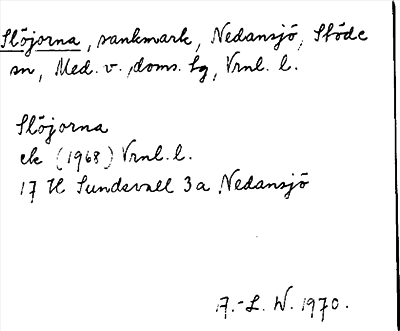 Slöjorna, sankmark, Nedansjö, Stöde
sn, Med. v. doms. sg, Vrnl. l.
Slöjorna
ek (1968) Vrnl. l.
17 H Sundsvall 3 a Nedansjö
A.-L. W. 1970.